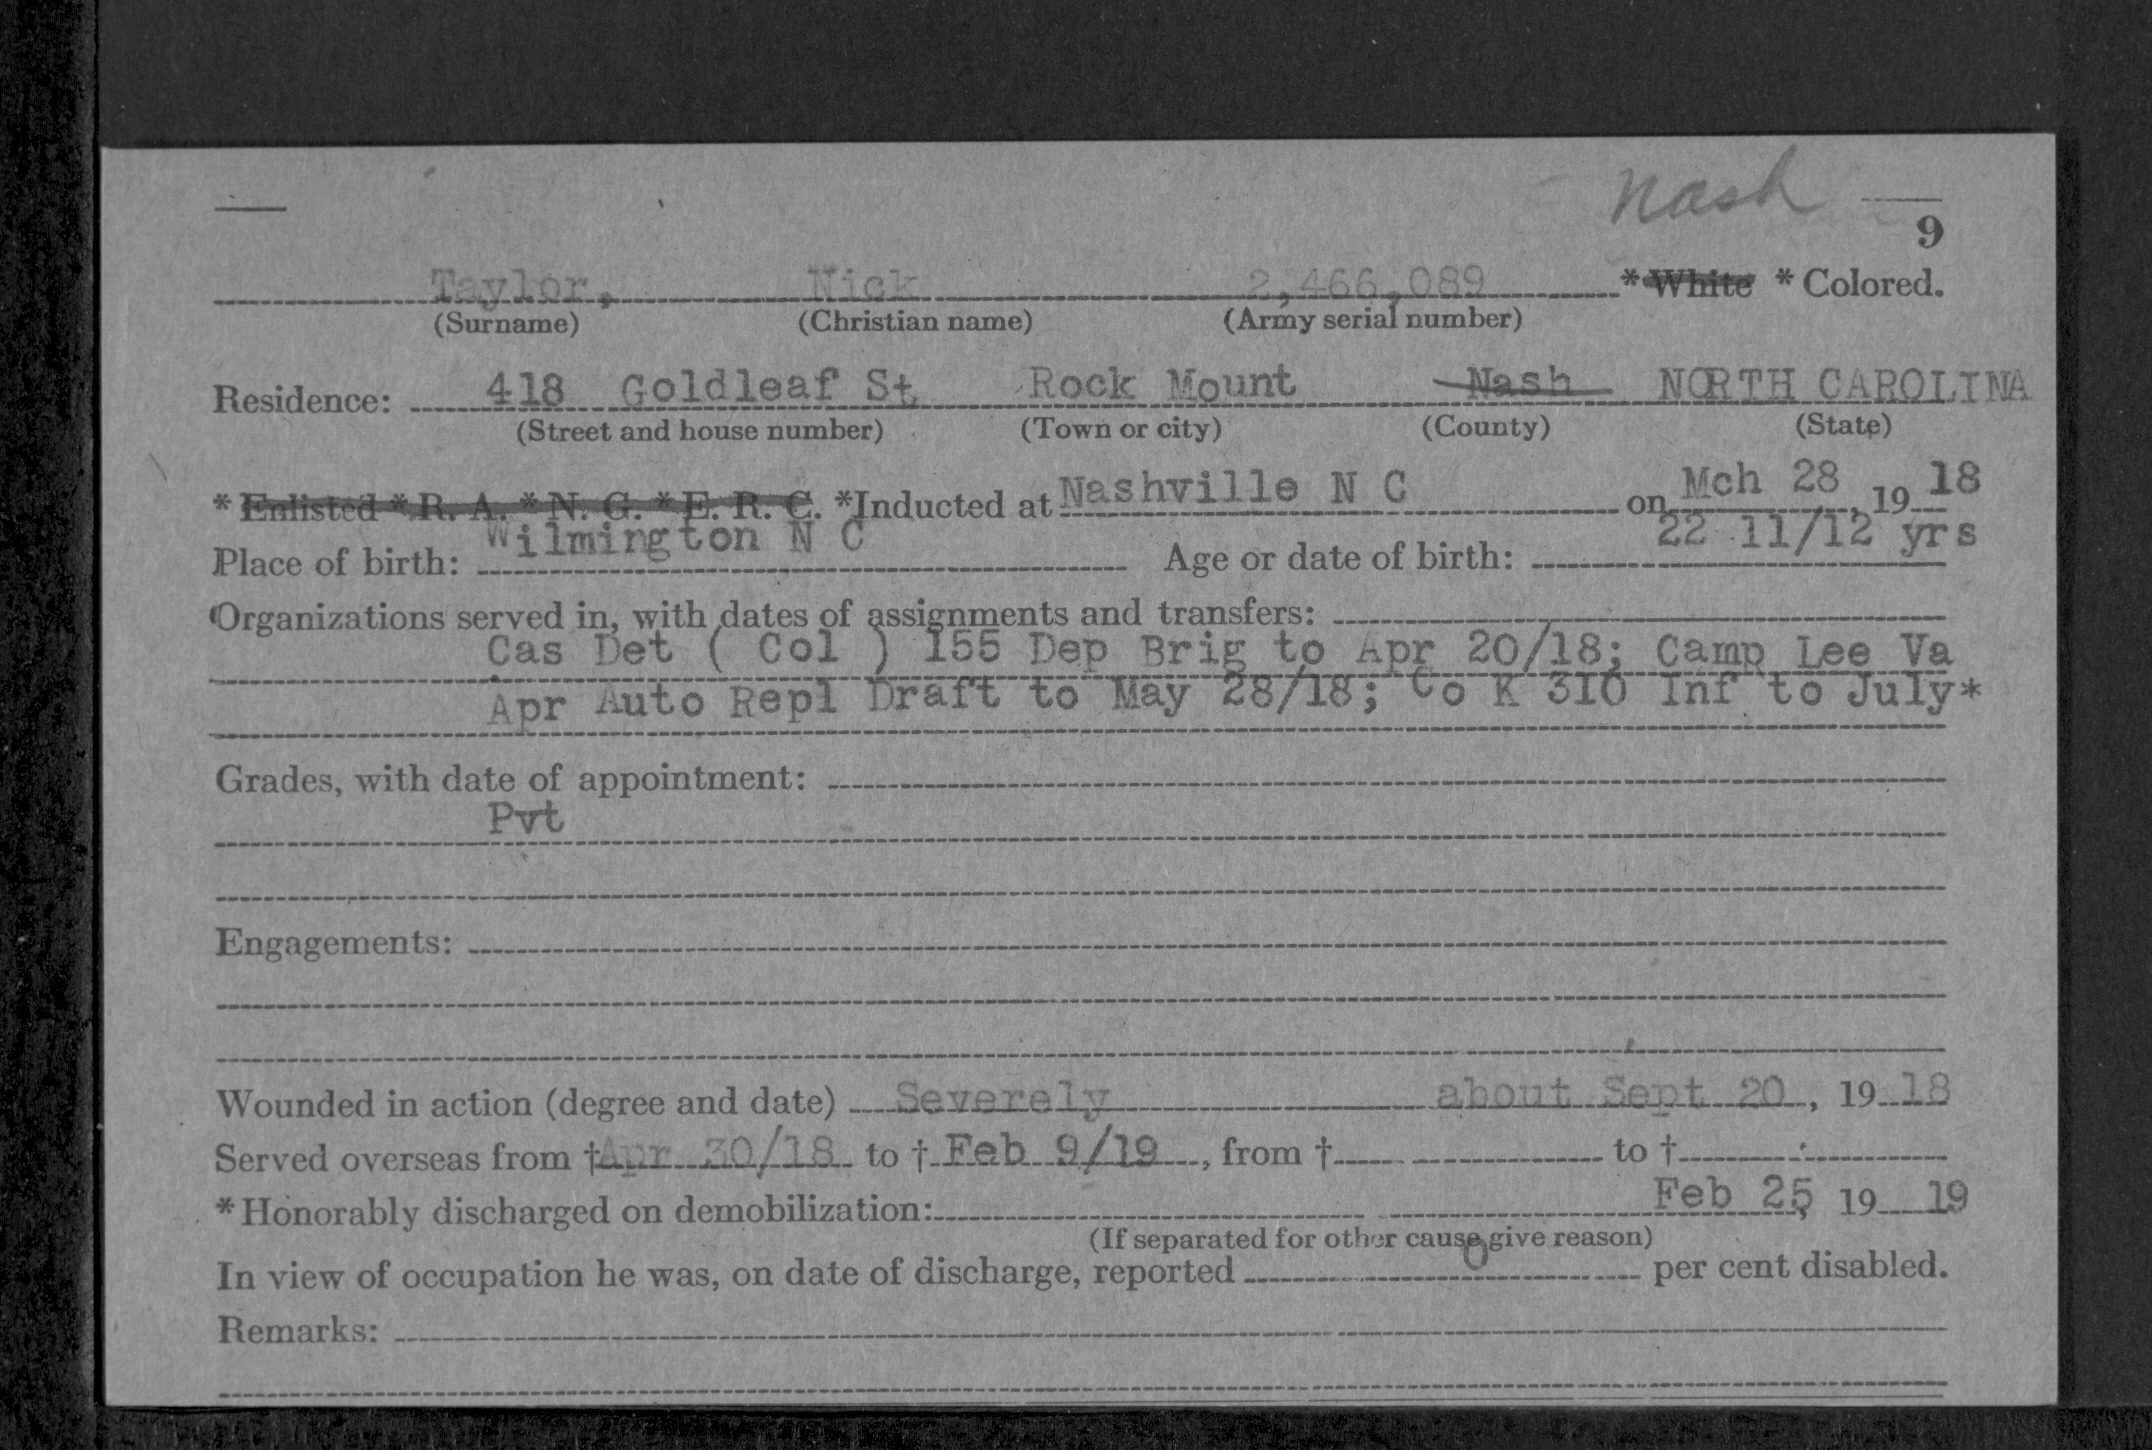 Nash
9
Taylor, Nick 2,466,089 *White *Colored.
(Surname) (Christian name) (Army serial number)
Residence: 418 Goldleaf St Rock Mount Nash NORTH CAROLINA
(Street and house number) (Town or city) (County) (State)
*Enlisted *R. A. *N. G. *E. R. C. *Inducted at Nashville N C on Mch 28, 19 18
Place of birth: Wilmington N C Age or date of birth: 22 11/12 yrs
Organizations served in, with dates of assignments and transfers:
Cas Det ( Col ) 155 Dep Brig to Apr 20/18; Camp Lee Va
Apr Auto Repl Draft to May 28/18; Co K 310 Inf to July*
Grades, with date of appointment:
Pvt
Engagements:
Wounded in action (degree and date) Severely about Sept 20, 19 18
Served overseas from †Apr 30/18 to † Feb 9/19, from † to †
*Honorably discharged on demobilization: Feb 25, 19 19
(If separated for other cause give reason)
In view of occupation he was, on date of discharge, reported 0 per cent disabled.
Remarks: